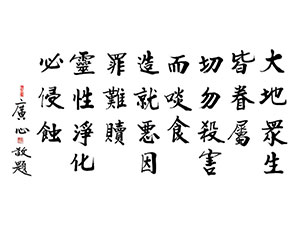 大地眾生
皆眷屬
切勿殺害
而啖食
造就惡因
罪難贖
靈性淨化
必侵蝕
廣心敬題